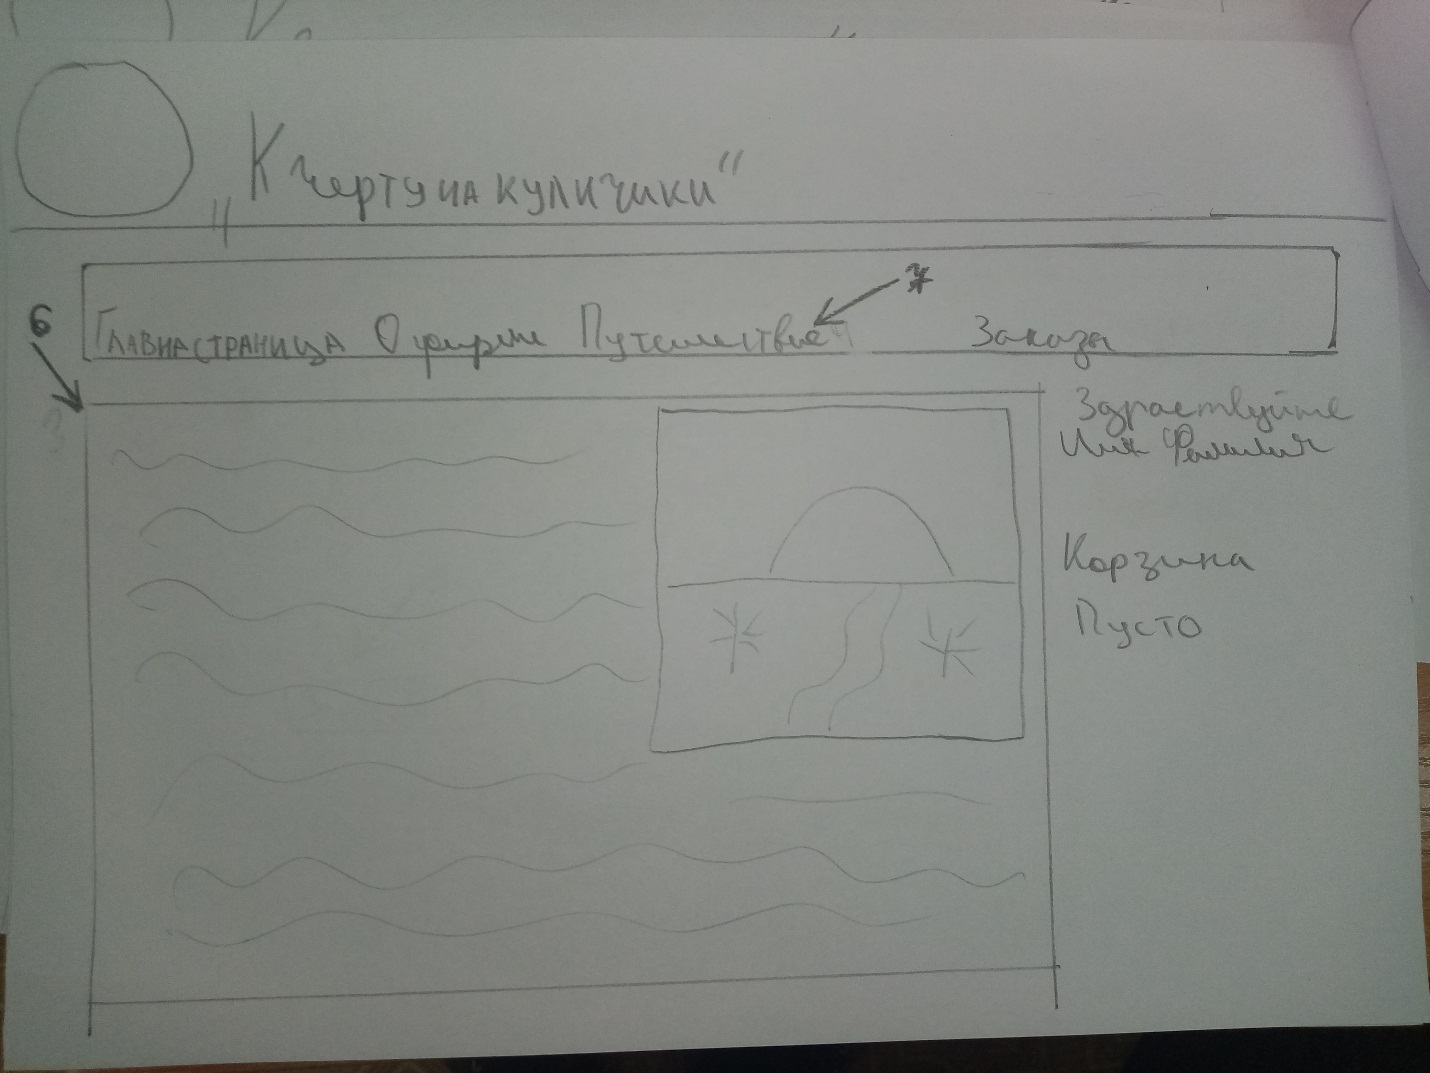 „К черту на кулички"
7
Главна страница О фирме Путешествие Заказы
6
Здраствуйте
Имя Фамилия
Корзина
Пусто